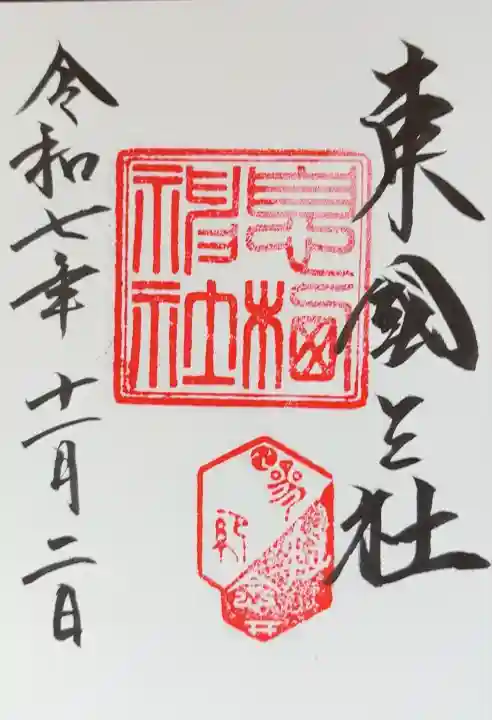 東國三社
令和七年 十一月二日
神社